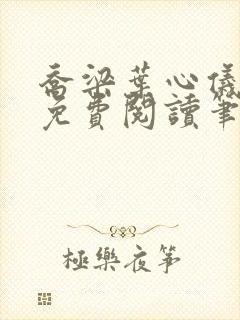 喬梁葉心儀
免費閱讀筆
極樂夜箏